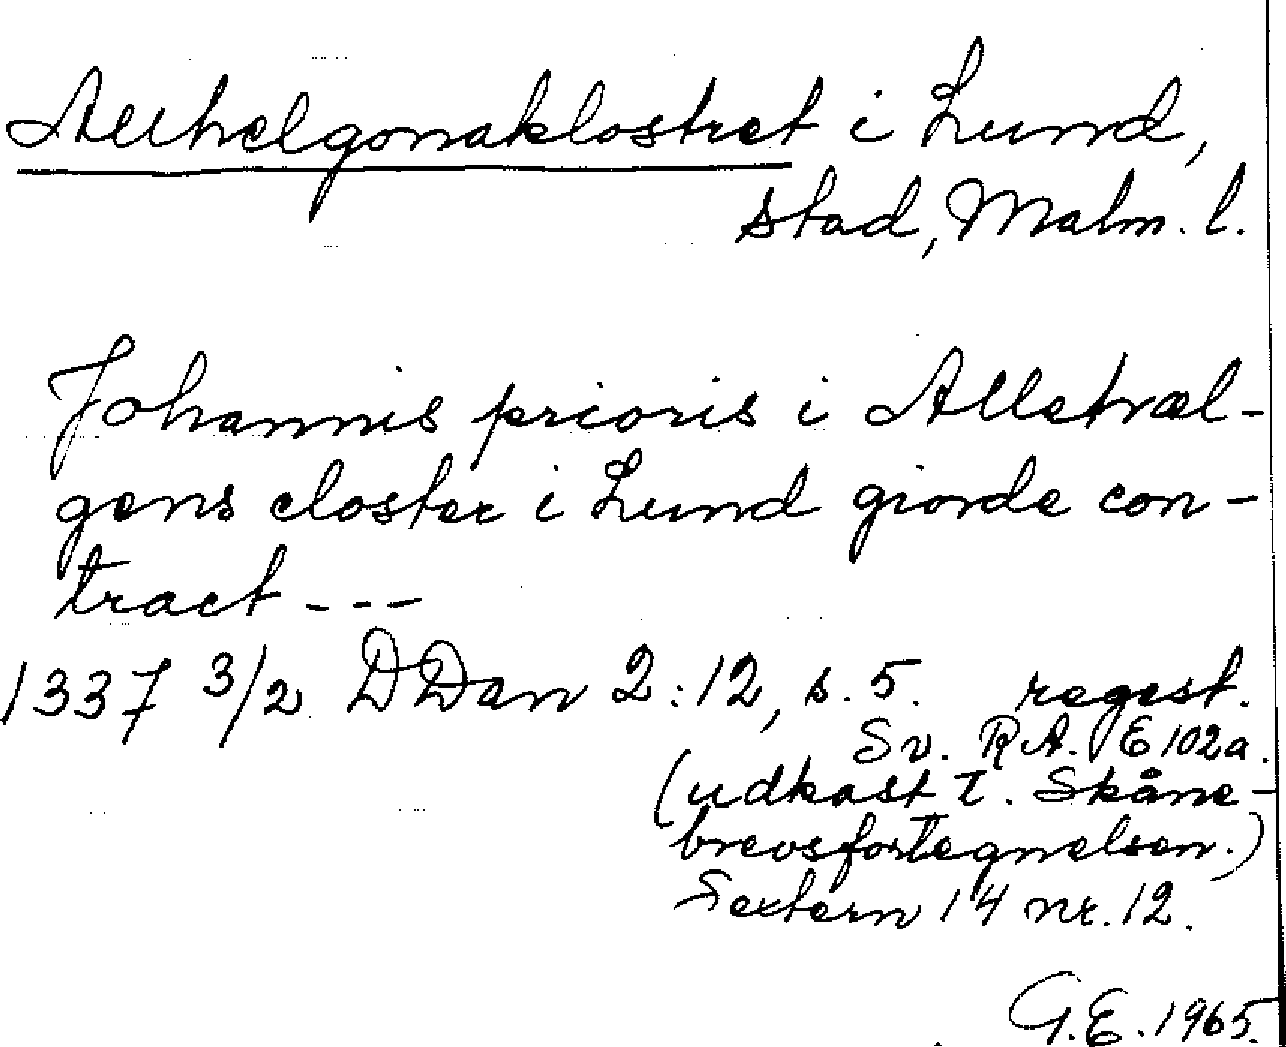 Allhelgonaklostret i Lund,
stad, Malm. l.
Johannis prioris i Allehæl-
gens closter i Lund giorde con-
tract - - -
1337 3/2 DDan 2:12, s. 5. regest.
Sv. R.A. E 102a.
(udkast t. Skåne-
brevsfortegnelsen.)
Sextern 14 nr. 12.
G.E. 1965.